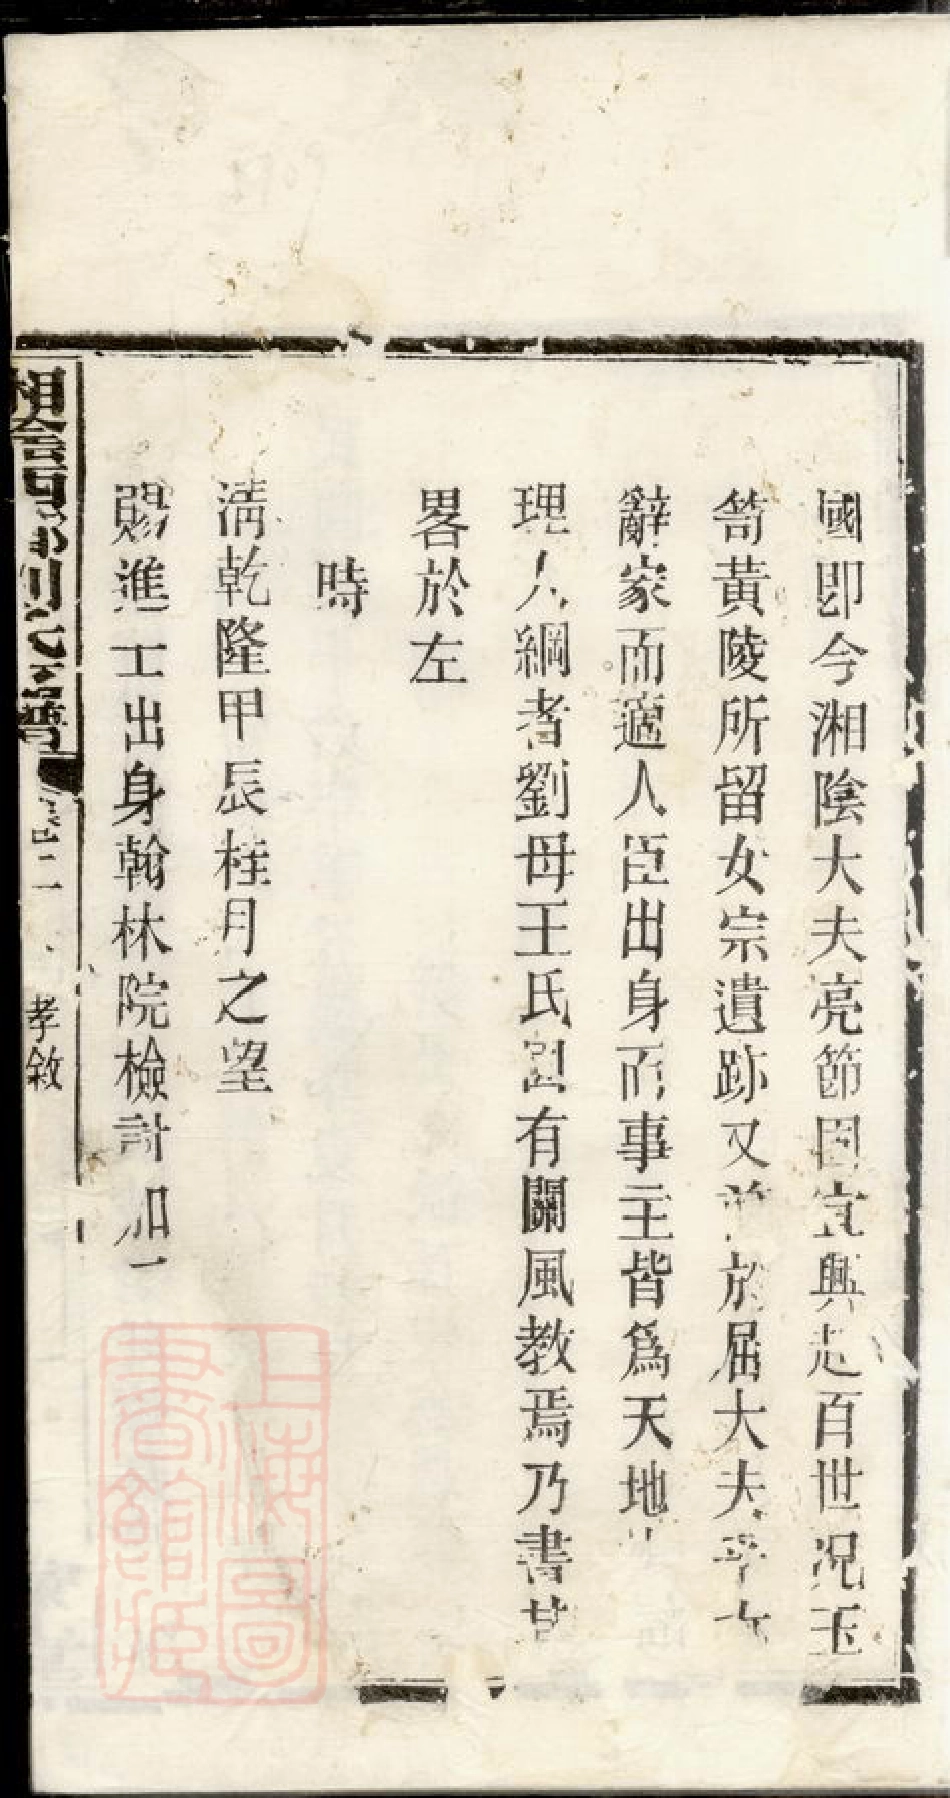 國即今湘陰大夫亮節固宜興起百世況玉
笥黃陵所留女宗遺跡又並於屈大夫乎女
辭家而適人臣出身而事主皆爲天地
理人綱者劉母王氏固有關風教焉乃書其
畧於左
時
清乾隆甲辰桂月之望
賜進士出身翰林院檢討加一
湘陰西鄉劉氏五譜
卷二
孝敘
上海圖書館藏